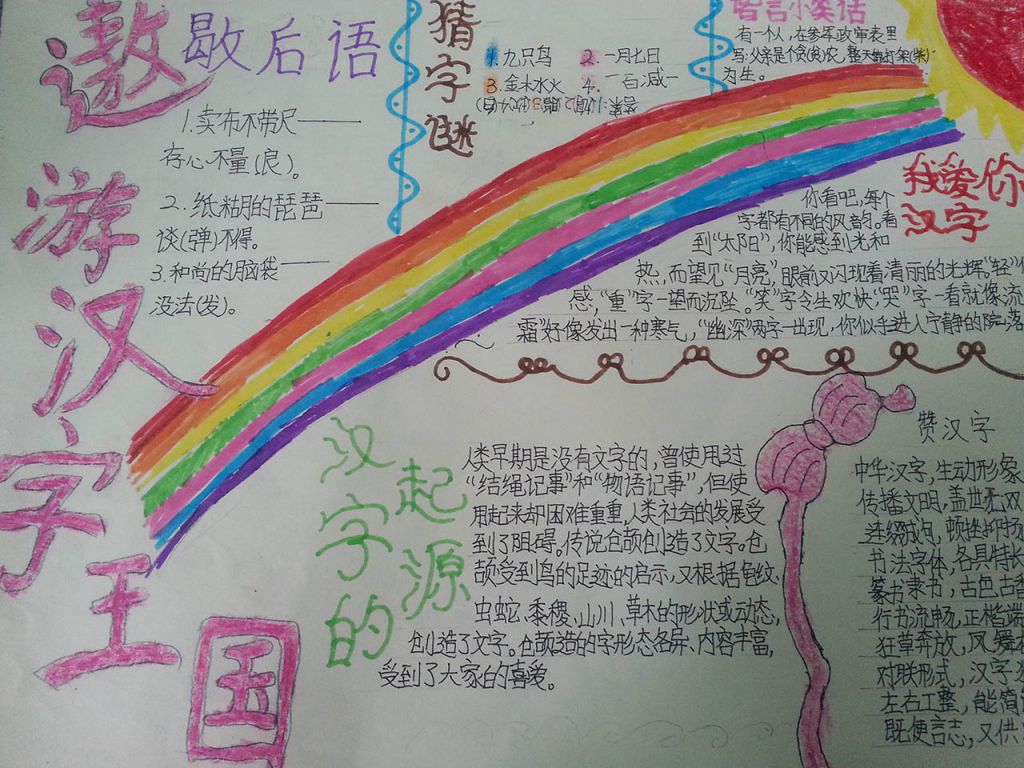 遨游汉字王国
歇后语
1.卖布不带尺——
存心不量(良)。
2.纸粘的琵琶——
谈(弹)不得。
3.和尚的脑袋——
没法(发)。
猜字谜
1.九只鸟 2.一月七日
3.金木水火 4.一百减一
谐言小笑话
有一个人,在参军政审表里
写:父亲是个贫农,整天靠打架(柴)
为生。
我爱你
汉字
你看吧,每个
字都有不同的风韵。看
到“太阳”,你能感到光和
热,而望见“月亮”,眼前又闪现着清丽的光辉。“轻”
感,“重”字一望而沉坠。“笑”字令生欢快,“哭”字一看就像流
霜”好像发出一种寒气,“幽深”两字一出现,你似乎进入宁静的院落
汉字的
起源
人类早期是没有文字的,曾使用过
“结绳记事”和“物语记事”,但使
用起来却困难重重,人类社会的发展受
到了阻碍。传说仓颉创造了文字。仓
颉受到鸟的足迹的启示,又根据龟纹、
虫蛇、黍稷、山川、草木的形状或动态,
创造了文字。仓颉造的字形态各异、内容丰富,
受到了大家的喜爱。
赞汉字
中华汉字,生动形象
传播文明,盖世无双
连缀成句,顿挫抑扬
书法字体,各具特长
篆书隶书,古色古香
行书流畅,正楷端
狂草奔放,凤
对联形式,汉字
左右工整,能简
既便言志,又供